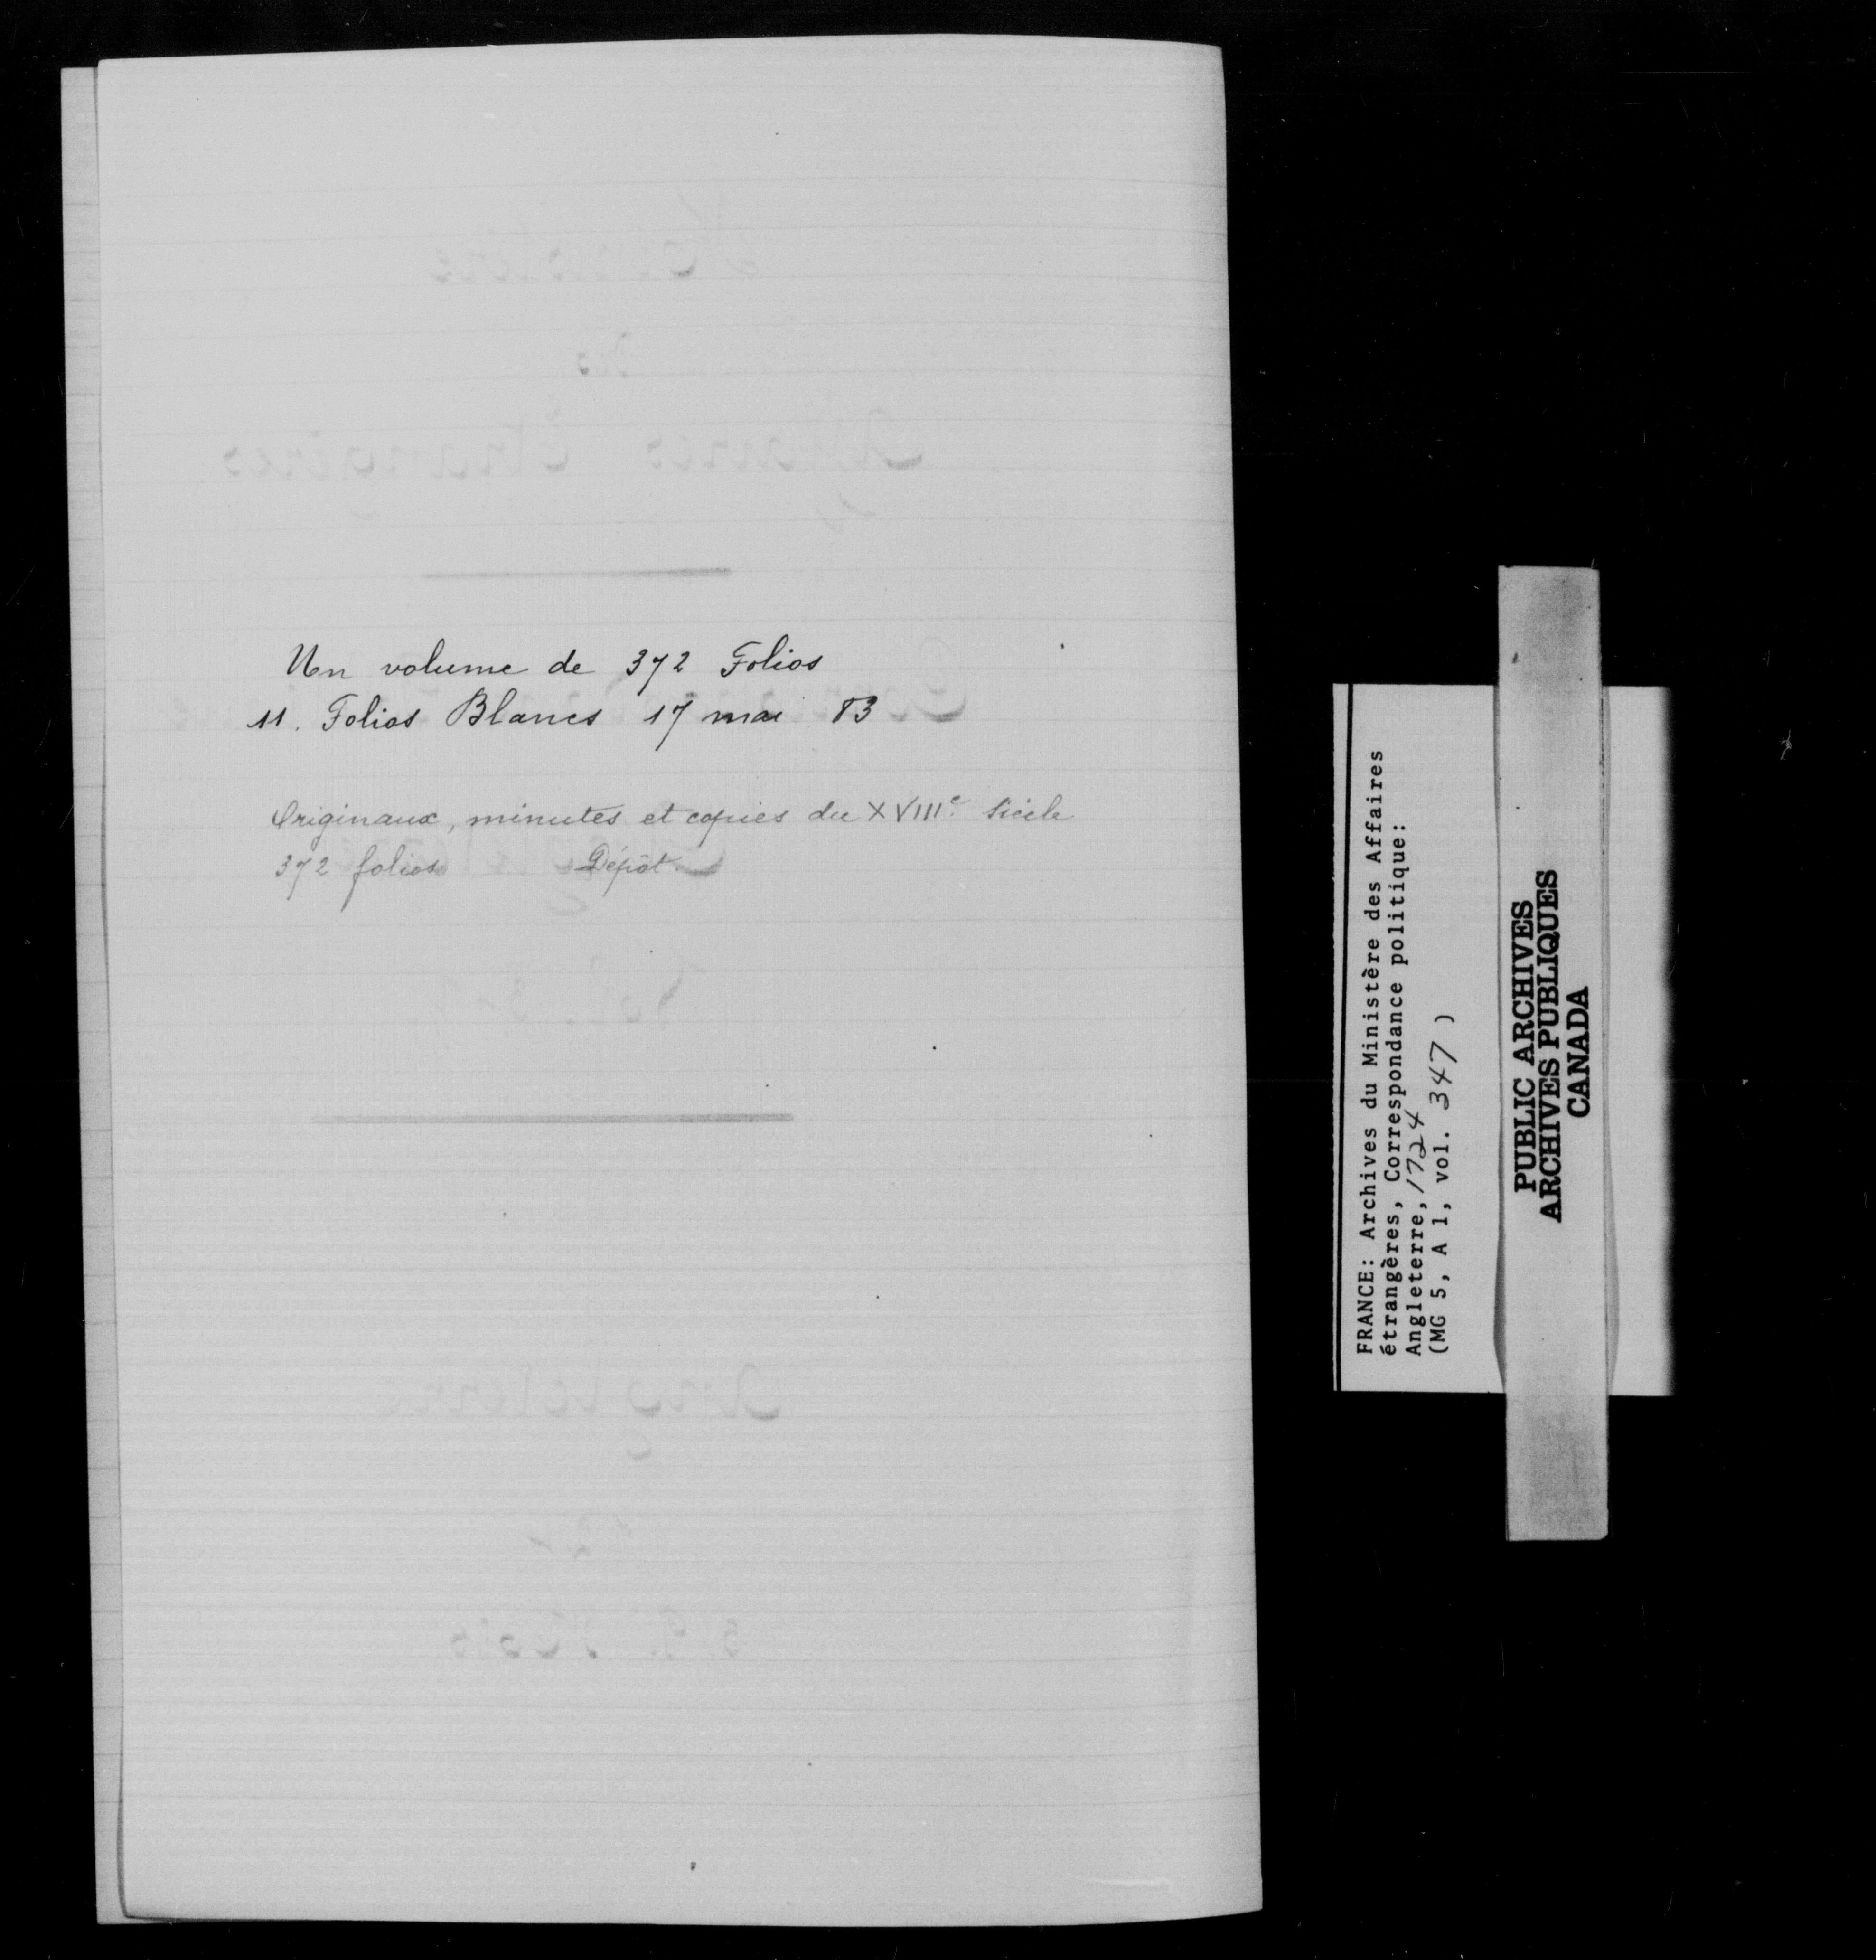 Un volume de 372 Folios
11. Folios Blancs 17 mai 83
Originaux, minutes et copies du XVIIIe. Siècle
372 folios Dépôt.
FRANCE: Archives du Ministère des Affaires
étrangères, Correspondance politique:
Angleterre, 1724
(MG 5, A 1, vol. 347)
PUBLIC ARCHIVES
ARCHIVES PUBLIQUES
CANADA